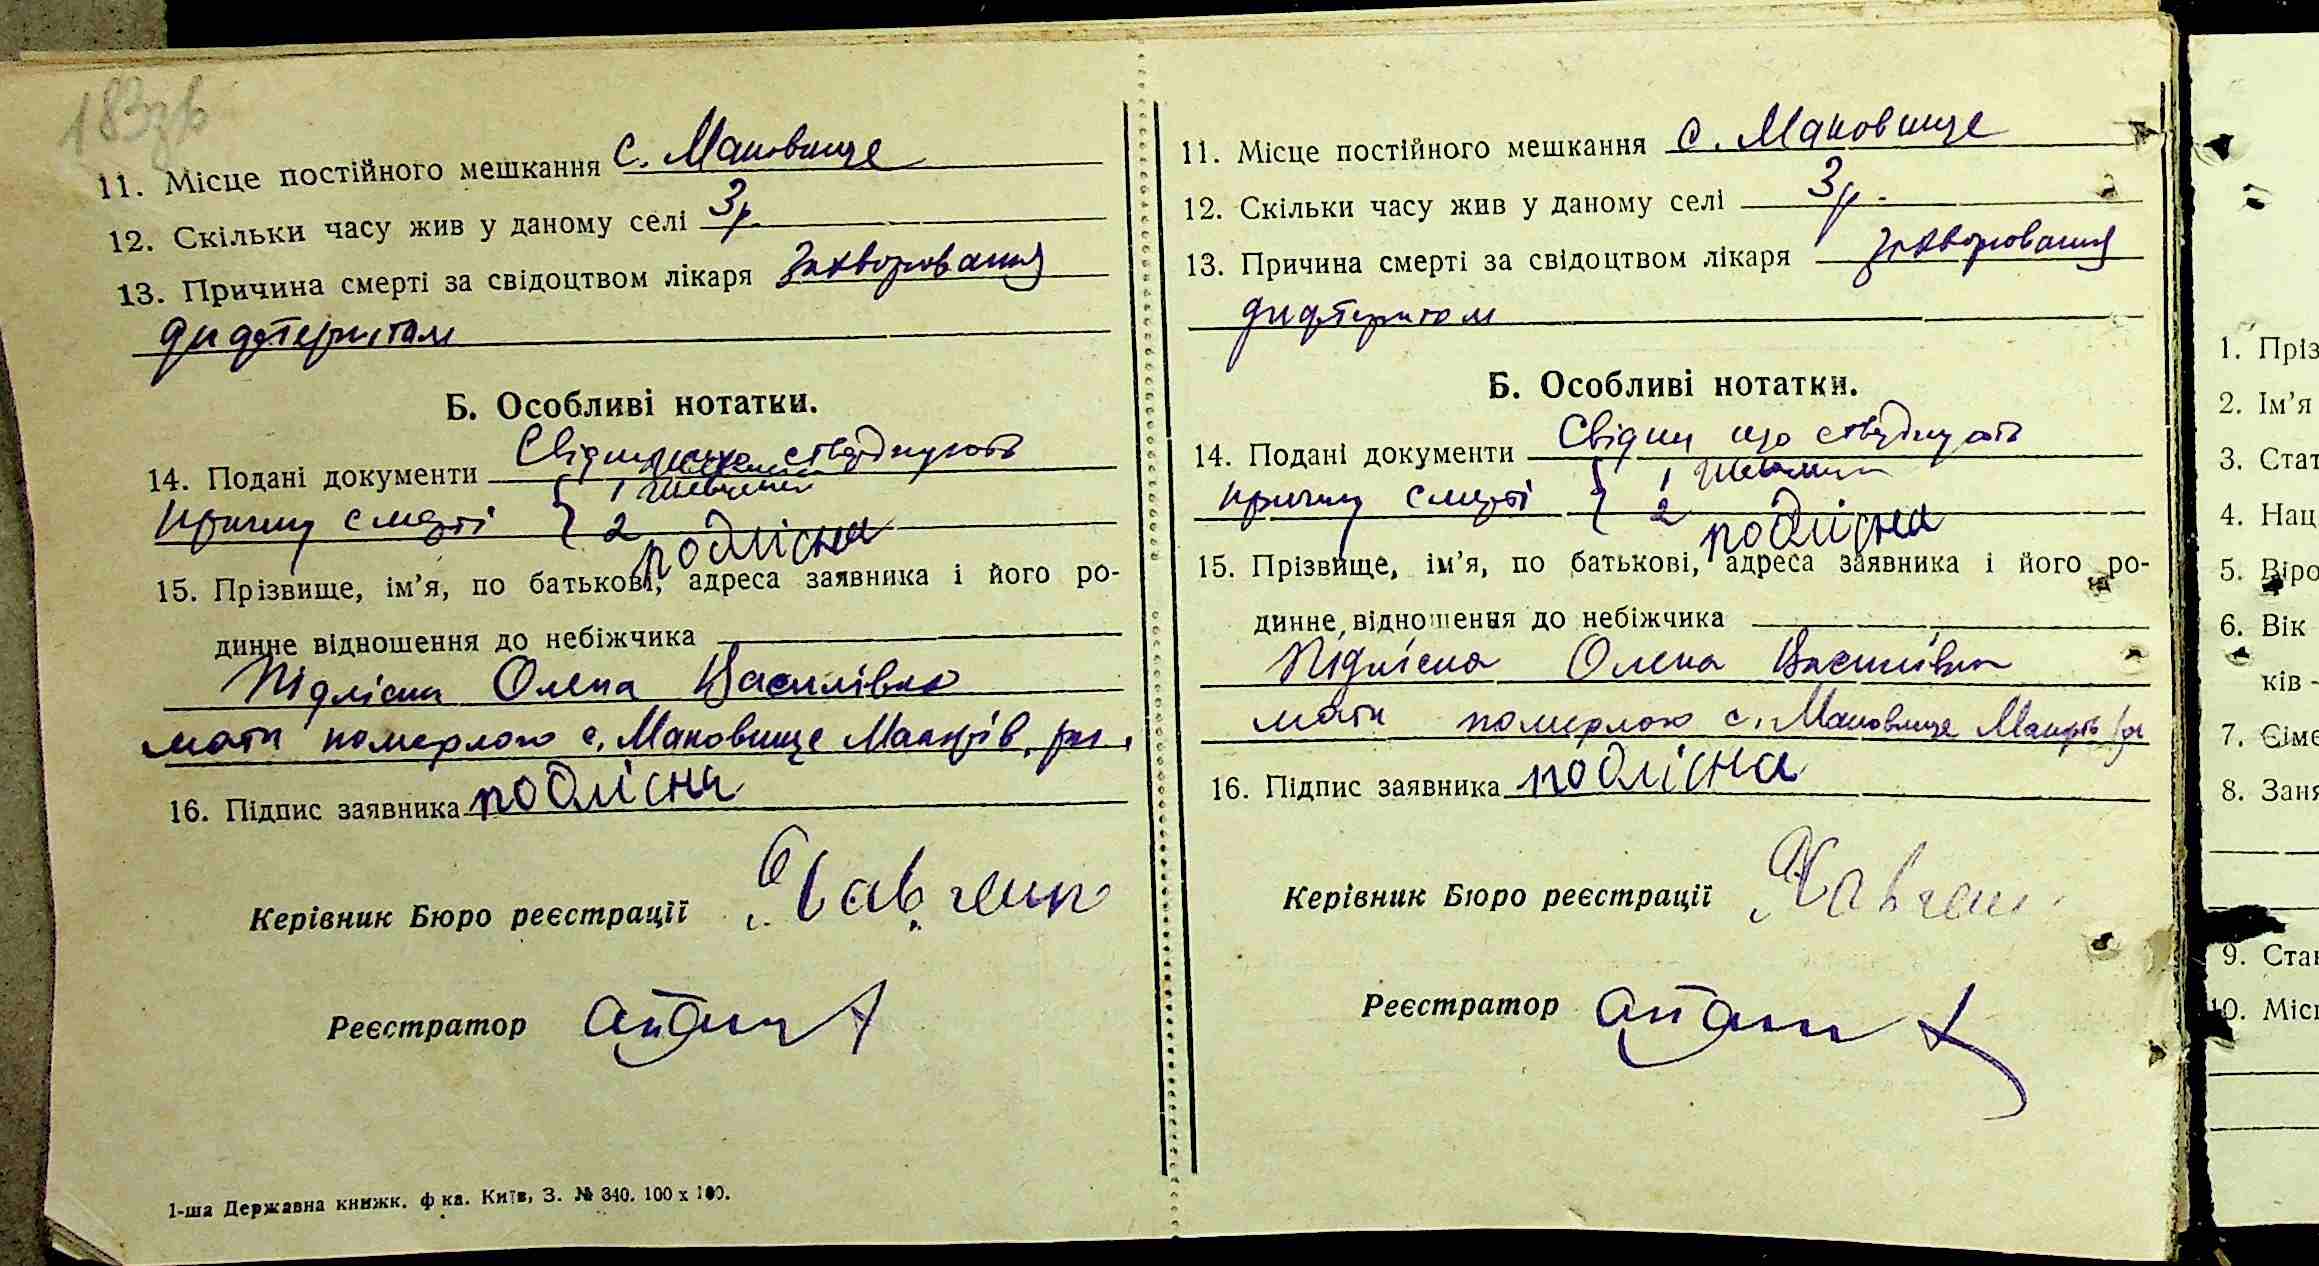 183зв
11. Місце постійного мешкання с. Маковище
12. Скільки часу жив у даному селі 3 р.
13. Причина смерті за свідоцтвом лікаря Захворювання
дифтеритом
Б. Особливі нотатки.
14. Подані документи Свідки що стверджують
причину смерті { 1
2 подлісна
15. Прізвище, ім'я, по батькові, адреса заявника і його ро-
динне відношення до небіжчика
Підлісна Олена Василівна
мати померлою с. Маковище Макарів. ра.
16. Підпис заявника подлісна
Керівник Бюро реєстрації
Реєстратор
1-ша Державна книжк. ф ка. Київ, З. № 340. 100 х 100.
11. Місце постійного мешкання с. Маковище
12. Скільки часу жив у даному селі 3 р.
13. Причина смерті за свідоцтвом лікаря Захворювання
дифтеритом
Б. Особливі нотатки.
14. Подані документи Свідки що стверджують
причину смерті { 1
2 подлісна
15. Прізвище, ім'я, по батькові, адреса заявника і його ро-
динне відношення до небіжчика
Підлісна Олена Василівна
мати померлою с. Маковище Макарів ра
16. Підпис заявника подлісна
Керівник Бюро реєстрації
Реєстратор
1. Пріз
2. Ім'я
3. Стат
4. Нац
5. Віро
6. Вік
ків -
7. Сіме
8. Заня
9. Стан
10. Місц